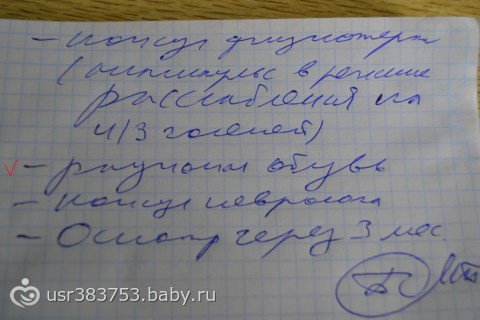 – консул физиотерап
(амплипульс в режиме
расслабления на
н/3 голеней)
– рационал обувь
– консул невролога
– Осмотр через 3 мес.
usr383753.baby.ru